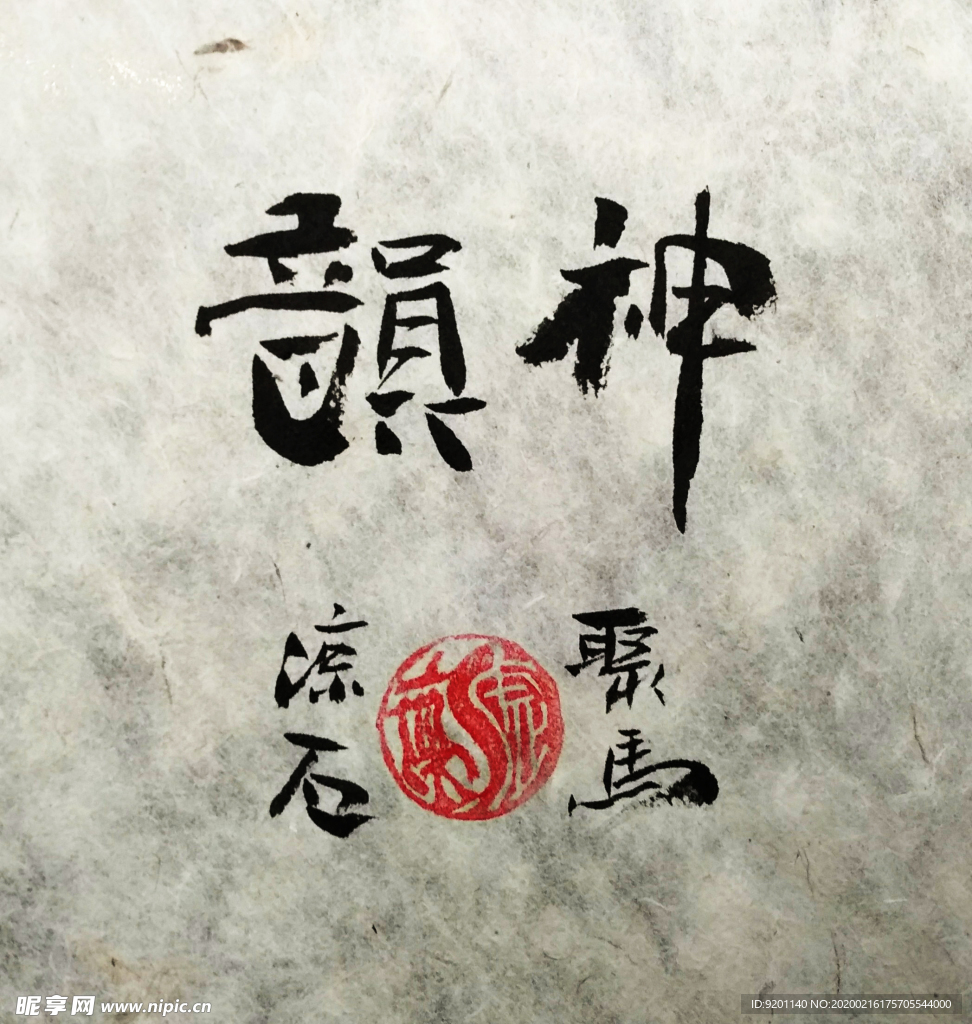 神韻
聚馬
涼石
昵享网 www.nipic.cn
ID:9201140 NO:20200216175705544000